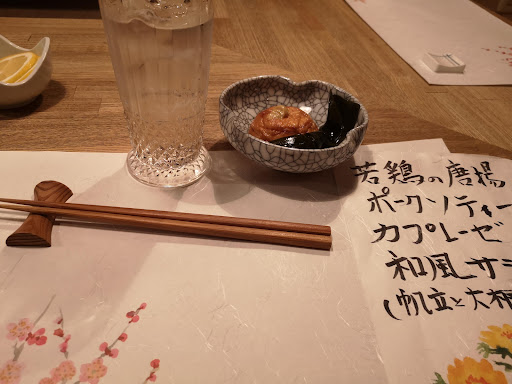 若鶏の唐揚
ポークソティー
カプレーゼ
和風サ
(帆立と大